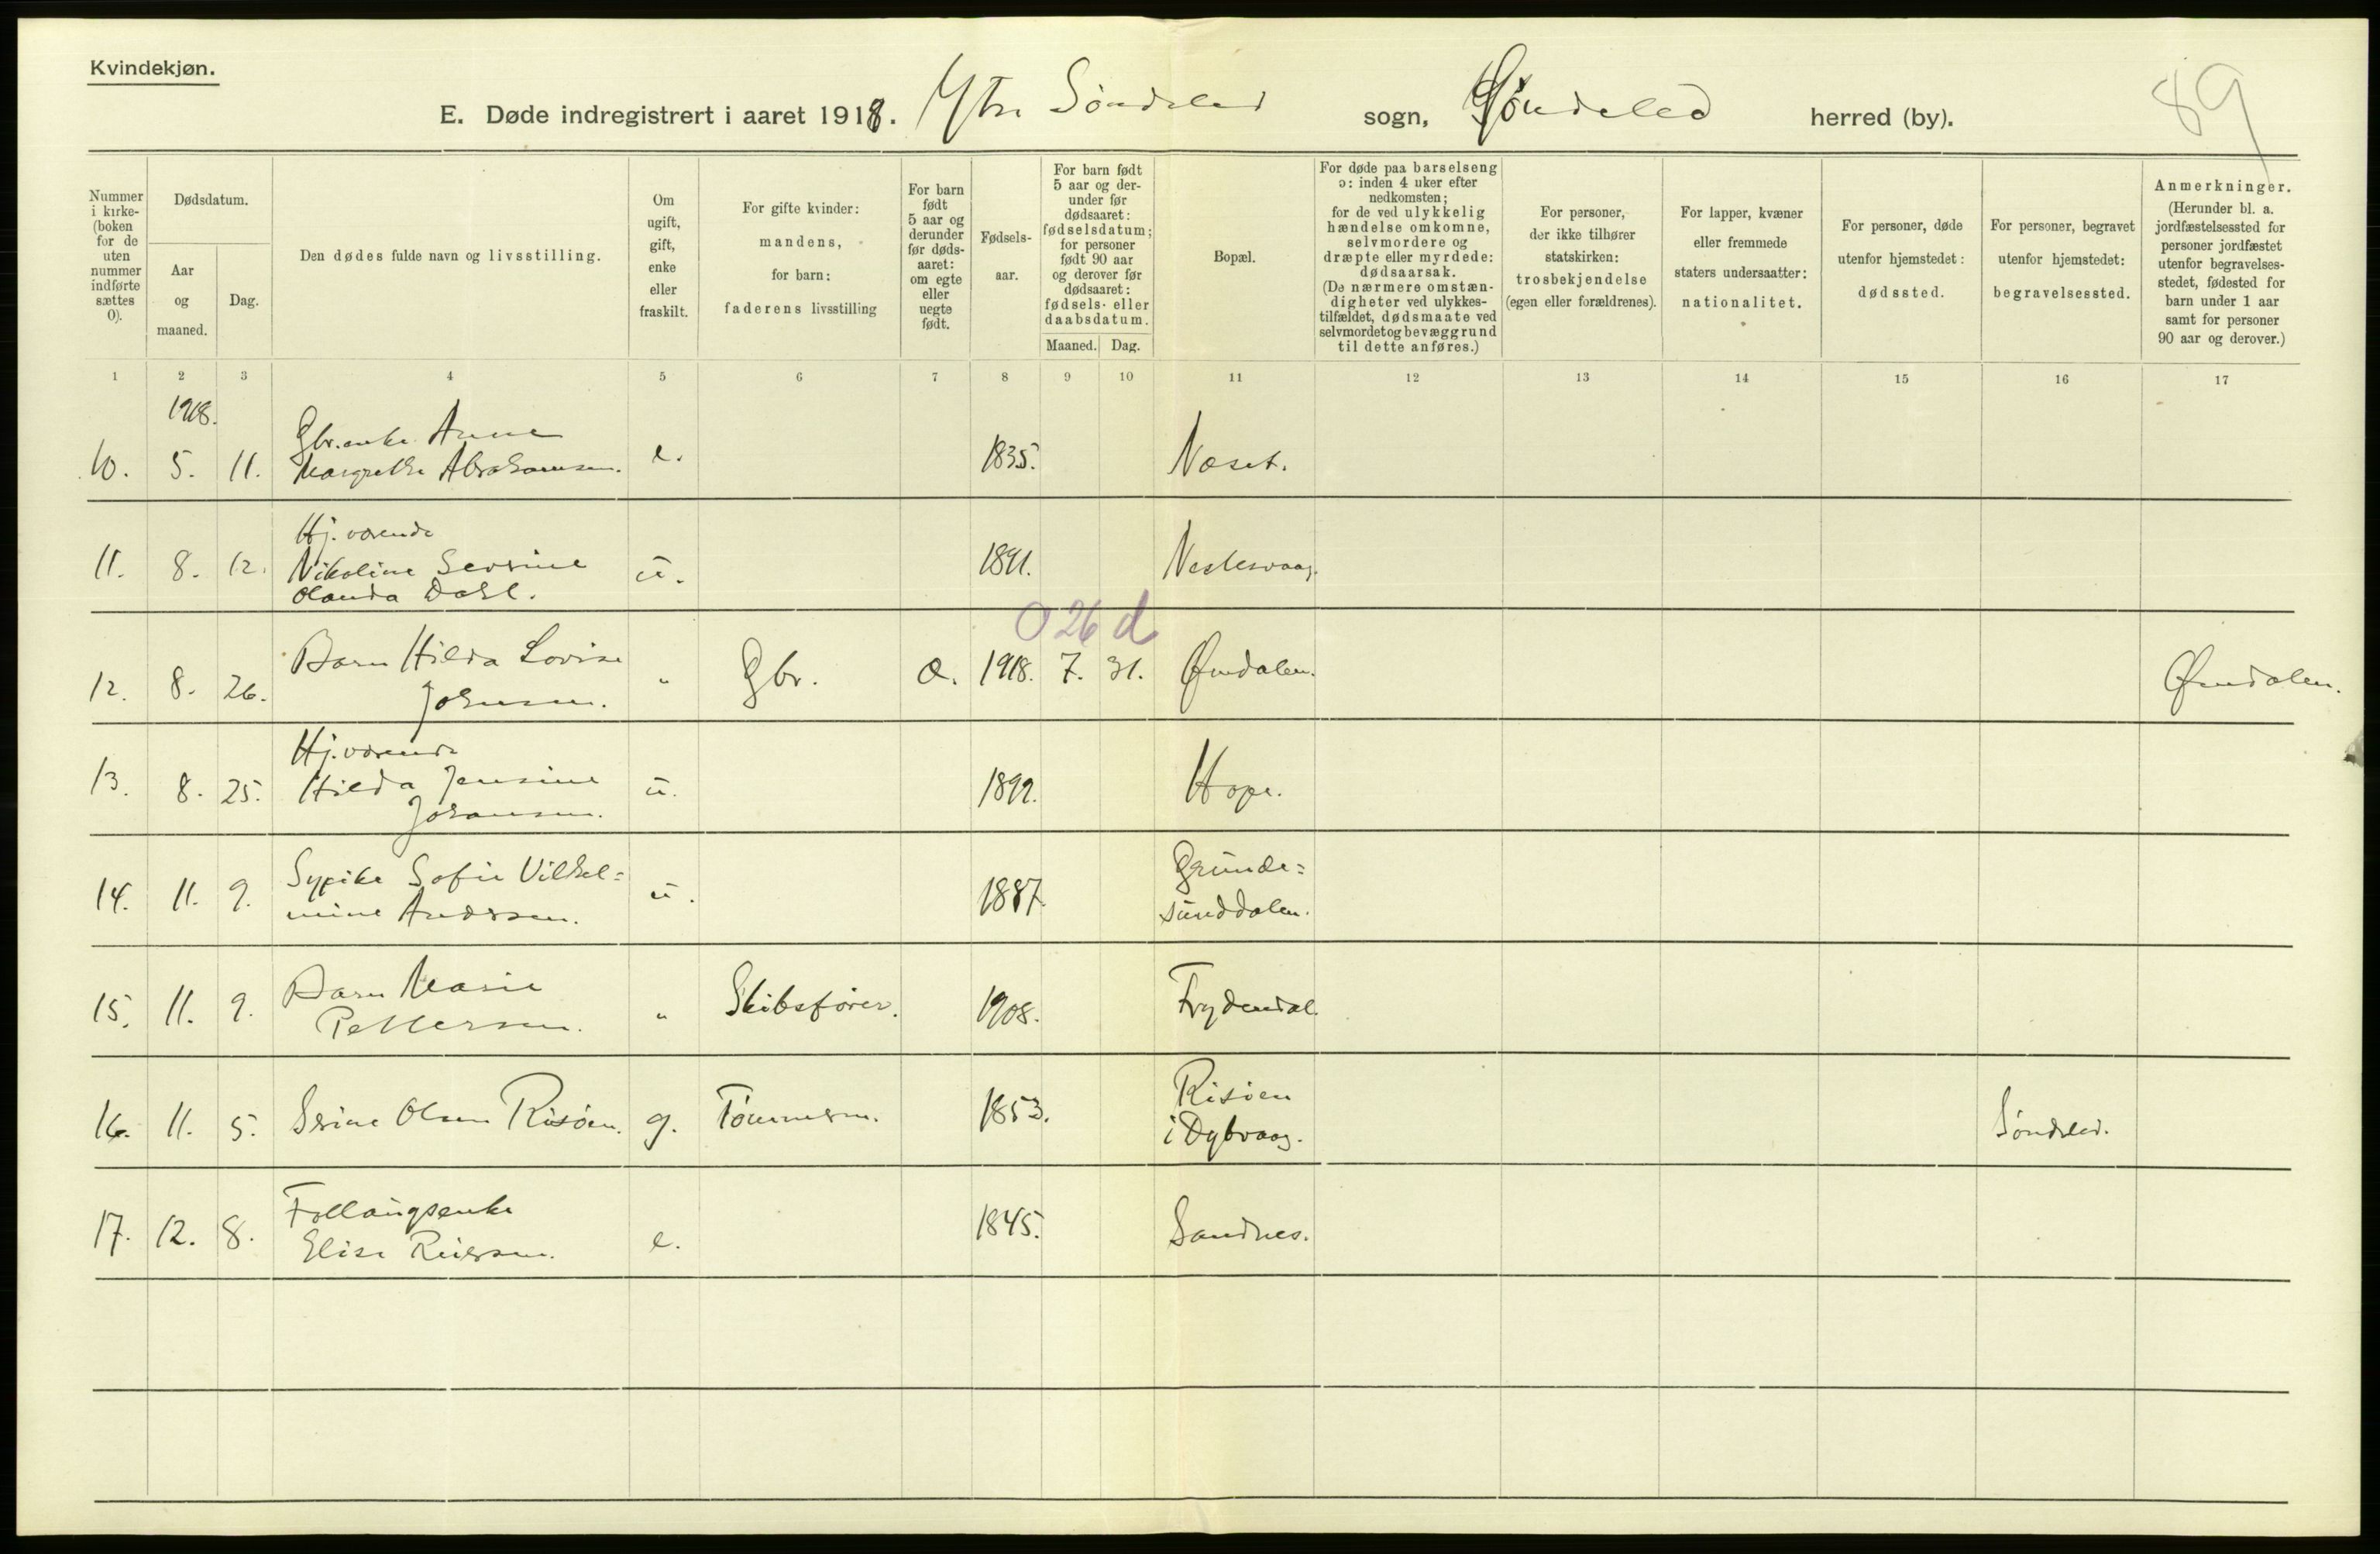 Kvindekjøn.
E. Døde indregistrert i aaret 1918. Ytre Söndeled sogn, Söndeled herred (by).
89
Nummer i kirke- (boken for de uten nummer indførte sættes 0).
Dødsdatum.
Aar og maaned.
Dag.
Den dødes fulde navn og livsstilling.
Om ugift, gift, enke eller fraskilt.
For gifte kvinder: mandens, for barn: faderens livsstilling
For barn født 5 aar og derunder før døds- aaret: om egte eller uegte født.
Fødsels- aar.
For barn født 5 aar og der- under før dødsaaret: fødselsdatum; for personer født 90 aar og derover før dødsaaret: fødsels- eller daabsdatum.
Maaned. Dag.
Bopæl.
For døde paa barselseng ɔ: inden 4 uker efter nedkomsten; for de ved ulykkelig hændelse omkomne, selvmordere og dræpte eller myrdede: dødsaarsak. (De nærmere omstæn- digheter ved ulykkes- tilfældet, dødsmaate ved selvmordet og bevæggrund til dette anføres.)
For personer, der ikke tilhører statskirken: trosbekjendelse (egen eller forældrenes).
For lapper, kvæner eller fremmede staters undersaatter: nationalitet.
For personer, døde utenfor hjemstedet: dødssted.
For personer, begravet utenfor hjemstedet: begravelsessted.
Anmerkninger. (Herunder bl. a. jordfæstelsessted for personer jordfæstet utenfor begravelses- stedet, fødested for barn under 1 aar samt for personer 90 aar og derover.)
1 2 3 4 5 6 7 8 9 10 11 12 13 14 15 16 17
1918.
Gbr. enke Anne
10. 5. 11. Margrethe Abrahamsen. e. 1835. Næset.
Hj. værende
11. 8. 12. Nikoline Severine u. 1891. Nestesvaag.
Olanda Dahl.
0 26 d
Barn Hilda Lovise
12. 8. 26. Johnsen. " Gbr. e. 1918. 7. 31. Ømdalen. Ømdalen.
Hj. værende
13. 8. 25. Hilda Jensine u. 1899. Hope.
Johansen.
Sypike Sofie Vilhel= Grunde=
14. 11. 9. mine Andersen. u. 1887. sunddalen.
Barn Marie
15. 11. 9. Pettersen. " Skibsfører. 1908. Frydendal.
Risöen
16. 11. 5. Serine Olsen Risöen. g. Tömmerm. 1853. i Dybvaag. Söndeled.
Follaugsenke
17. 12. 8. Elise Reiersen. e. 1845. Sandnes.